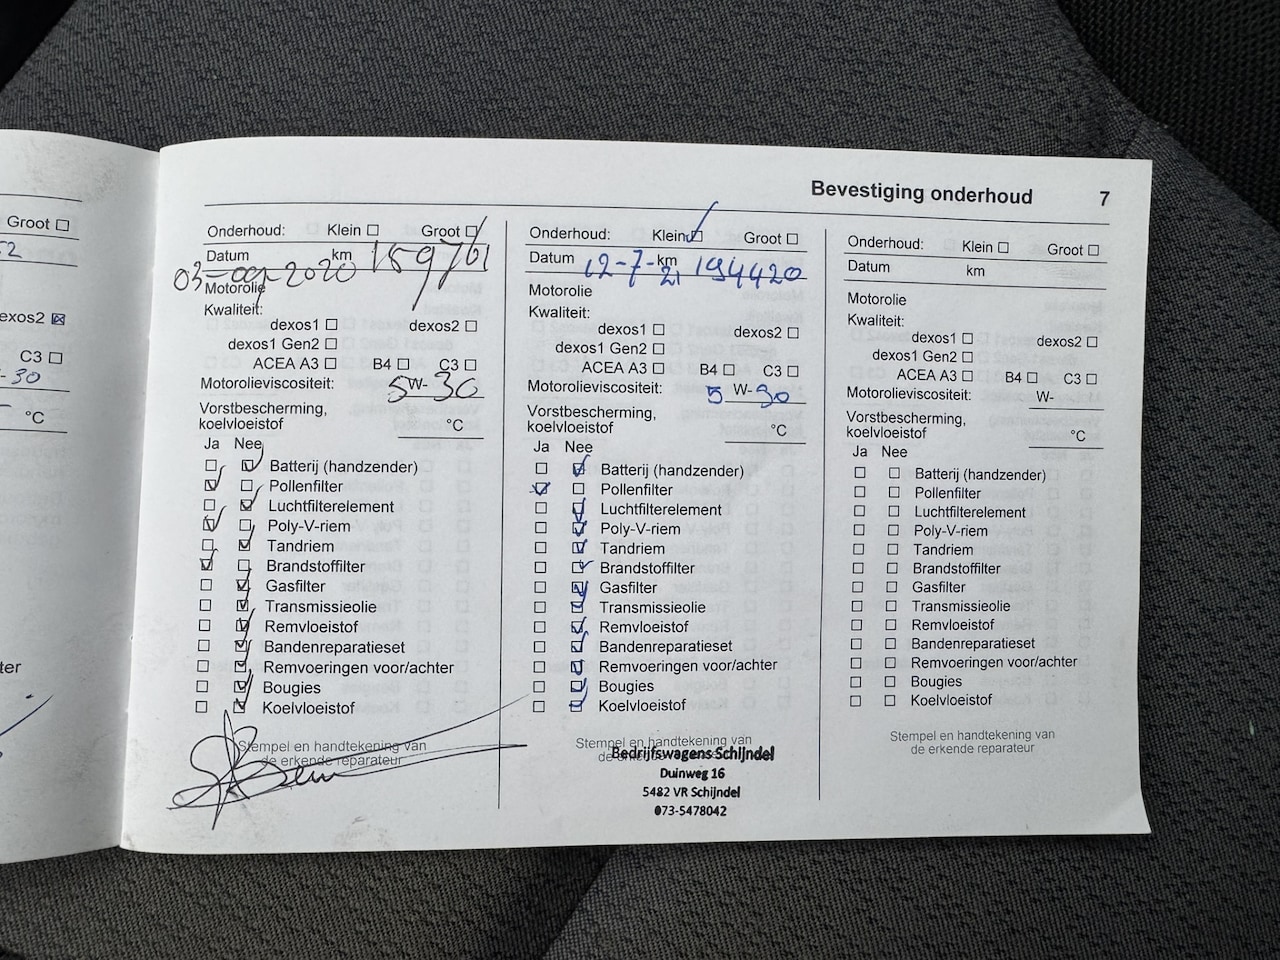 Groot
52
exos2
C3
-30
°C
ter
Bevestiging onderhoud 7
Onderhoud: Klein Groot
Datum km
03-09-2020 159761
Motorolie
Kwaliteit:
dexos1 dexos2
dexos1 Gen2
ACEA A3 B4 C3
Motorolieviscositeit: 5 W- 30
Vorstbescherming,
koelvloeistof °C
Ja Nee
Batterij (handzender)
Pollenfilter
Luchtfilterelement
Poly-V-riem
Tandriem
Brandstoffilter
Gasfilter
Transmissieolie
Remvloeistof
Bandenreparatieset
Remvoeringen voor/achter
Bougies
Koelvloeistof
Stempel en handtekening van
de erkende reparateur
Onderhoud: Klein Groot
Datum 12-7-21 km 194420
Motorolie
Kwaliteit:
dexos1 dexos2
dexos1 Gen2
ACEA A3 B4 C3
Motorolieviscositeit: 5 W- 30
Vorstbescherming,
koelvloeistof °C
Ja Nee
Batterij (handzender)
Pollenfilter
Luchtfilterelement
Poly-V-riem
Tandriem
Brandstoffilter
Gasfilter
Transmissieolie
Remvloeistof
Bandenreparatieset
Remvoeringen voor/achter
Bougies
Koelvloeistof
Stempel en handtekening van
de erkende reparateur
Bedrijfswagens Schijndel
Duinweg 16
5482 VR Schijndel
073-5478042
Onderhoud: Klein Groot
Datum km
Motorolie
Kwaliteit:
dexos1 dexos2
dexos1 Gen2
ACEA A3 B4 C3
Motorolieviscositeit: W-
Vorstbescherming,
koelvloeistof °C
Ja Nee
Batterij (handzender)
Pollenfilter
Luchtfilterelement
Poly-V-riem
Tandriem
Brandstoffilter
Gasfilter
Transmissieolie
Remvloeistof
Bandenreparatieset
Remvoeringen voor/achter
Bougies
Koelvloeistof
Stempel en handtekening van
de erkende reparateur